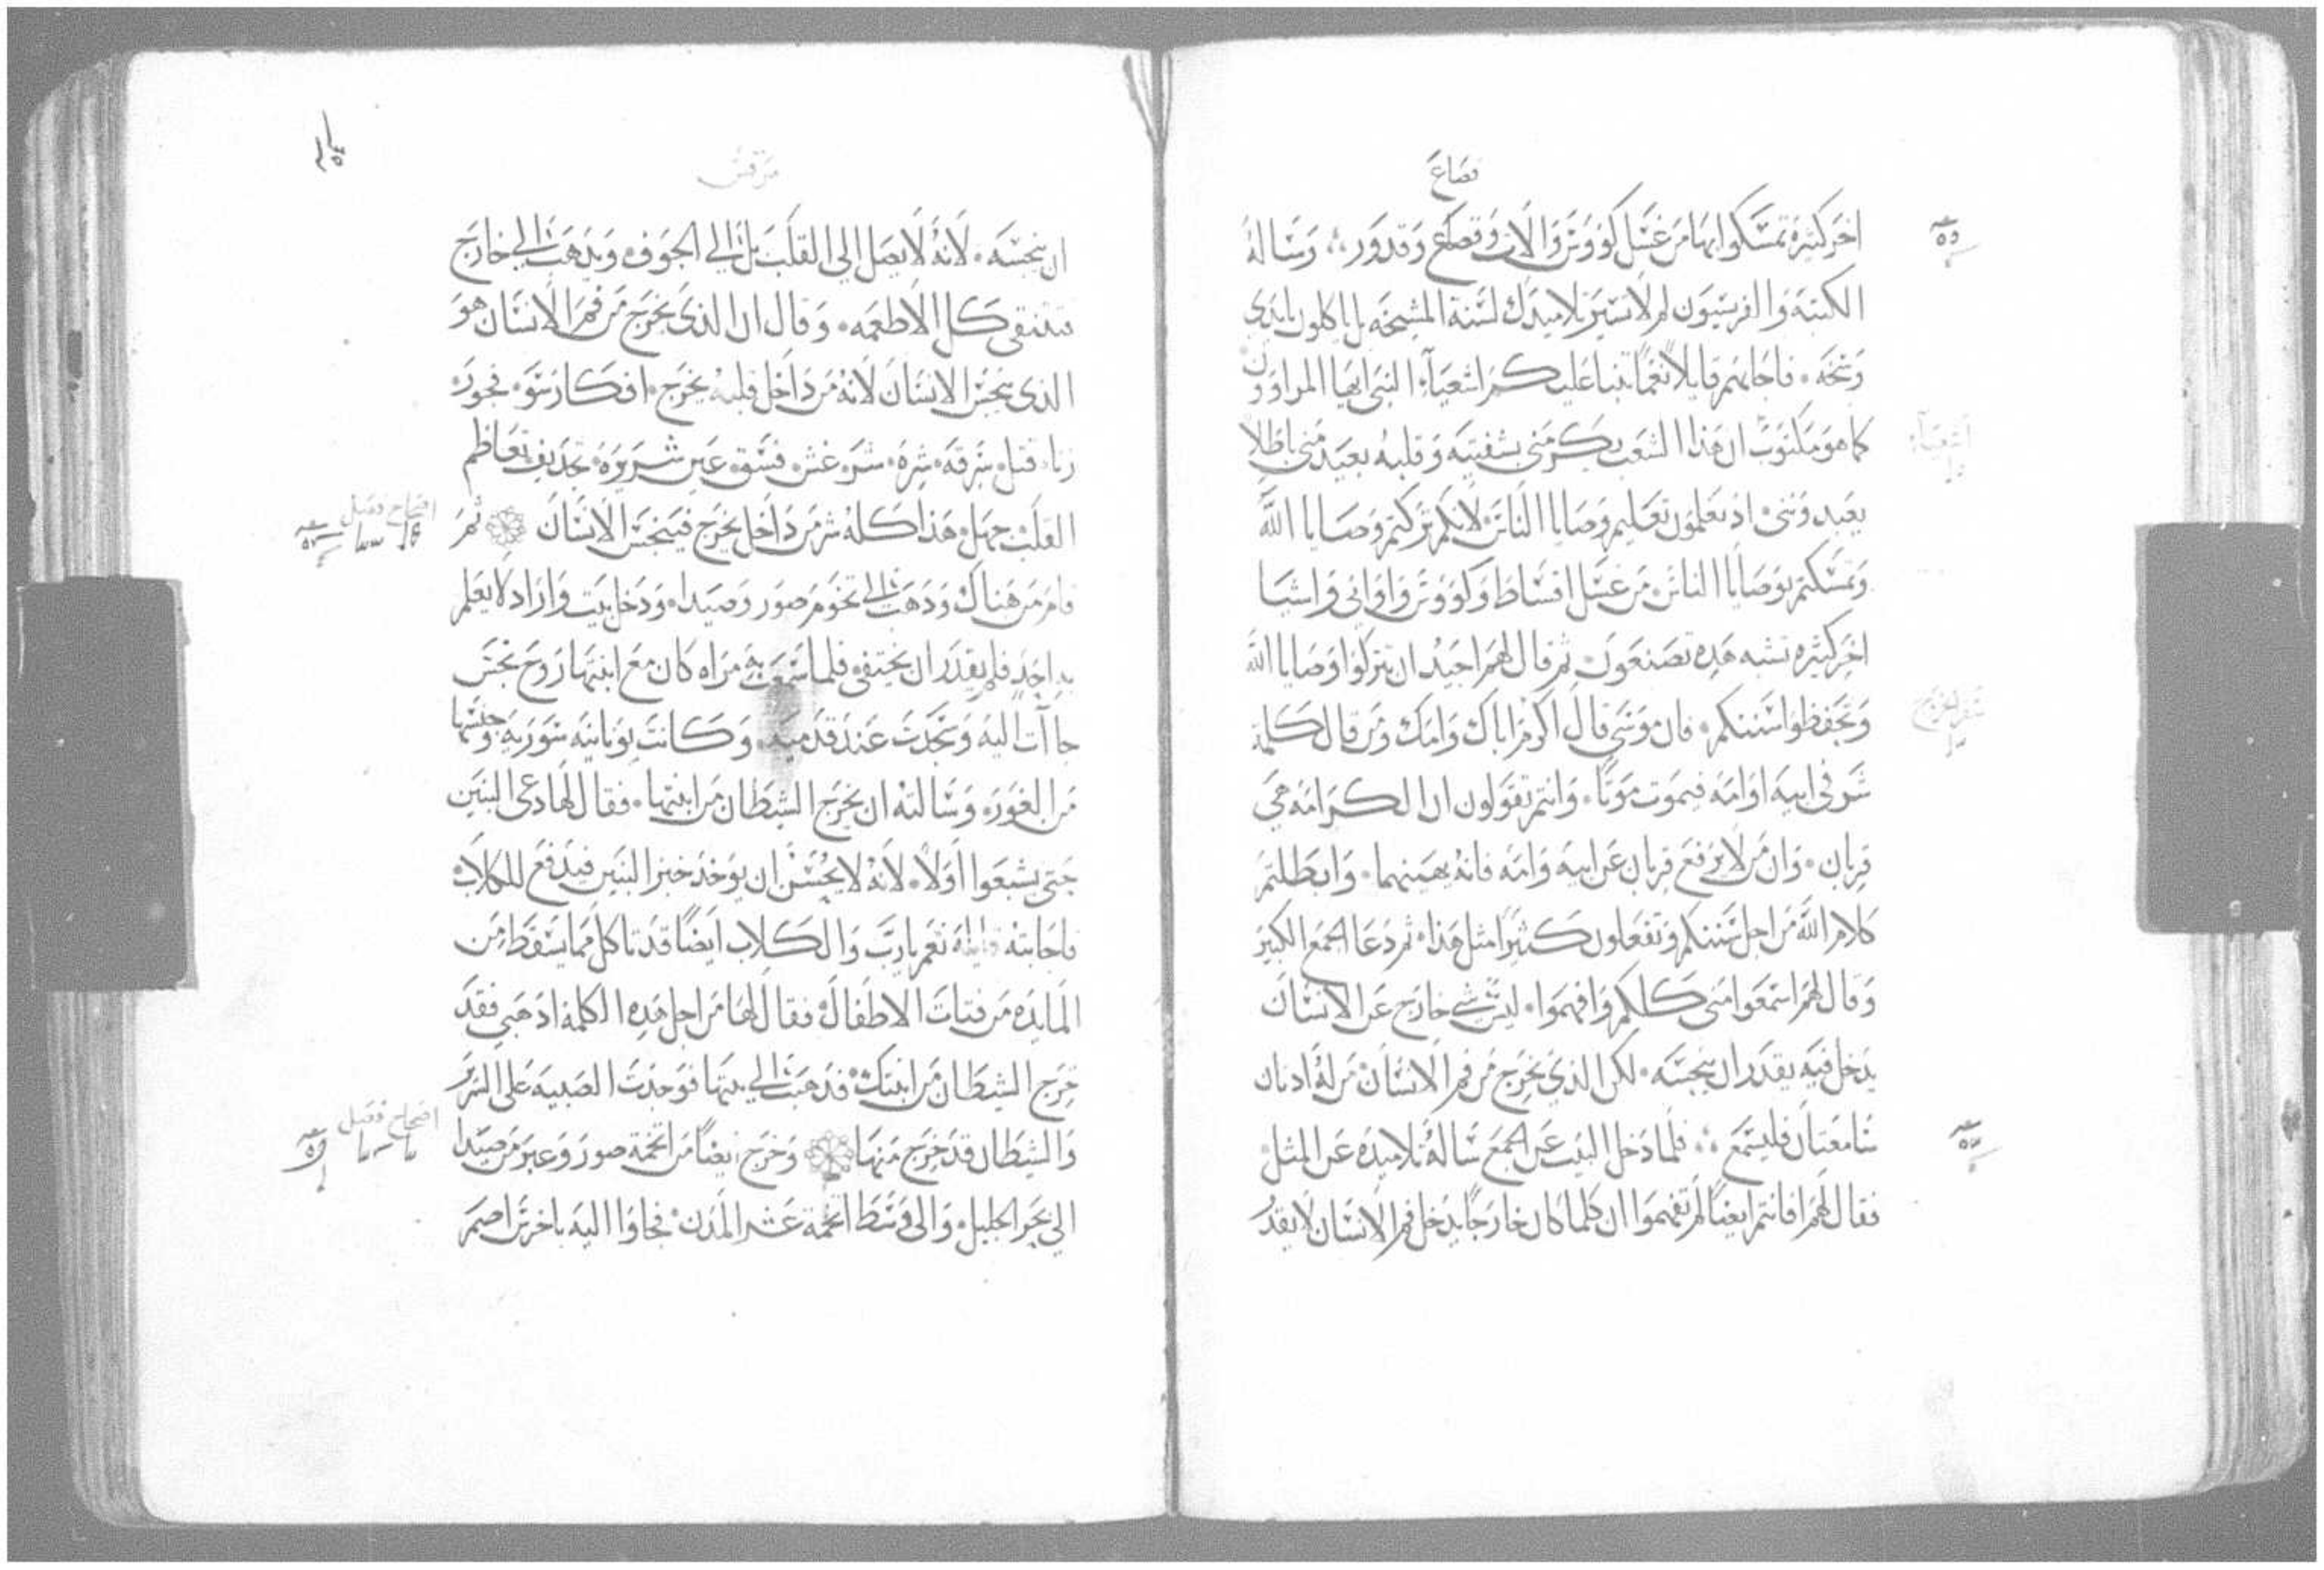 قصاع
اخر كثيره تمسكوا بها من غسل كووس والات وقصاع وقدور وساله
الكتبه والفريسيون لم لا تسير تلاميدك لسنة المشيخه بل ياكلون بايدي
وسخه فاجابهم قايلا نعما تنبا عليكم اشعيا النبي ايها المراوون
كما هو مكتوب ان هذا الشعب يكرمني بشفتيه وقلبه بعيد مني باطلا
يعبدونني اذ يعلمون تعاليم وصايا الناس لانكم تركتم وصايا الله
وتمسكتم بوصايا الناس من غسل اقساط وكووس واواني واشيا
اخر كثيره تشبه هده تصنعون ثم قال لهم اجيد ان تتركوا وصايا الله
وتحفظوا سننكم فان موسى قال اكرم اباك وامك ومن قال كلمة
سو في ابيه او امه فيموت موتا وانتم تقولون ان الكرامه هي
قربان وان من لا يرفع قربان عن ابيه وامه فانه يهينهما وابطلتم
كلام الله من اجل سننكم وتفعلون كثيرا مثل هذا ثم دعا الجمع الكبير
وقال لهم اسمعوا مني كلكم وافهموا ليس شي خارج عن الانسان
يدخل فيه يقدر ان ينجسه لكن الذي يخرج من فم الانسان من له ادنان
سامعتان فليسمع فلما دخل البيت عن الجمع ساله تلاميده عن المثل
فقال لهم افانتم ايضا لم تفهموا ان كلما كان خارجا يدخل فم الانسان لا يقدر
اشعيا
سفر الخروج
مرقس
ان ينجسه لانه لا يصل الى القلب بل الي الجوف ويدهب الي خارج
فتنقى كل الاطعمه وقال ان الذي يخرج من فم الانسان هو
الذي ينجس الانسان لانه من داخل قلبه يخرج افكار سو فجور
زنا قتل سرقه شره شر غش فسق عين شريره تجديف تعاظم
القلب جهل هذا كله شر من داخل يخرج فينجس الانسان ثم
قام من هناك ودهب الي تخوم صور وصيدا ودخل بيت واراد لا يعلم
به احد فلم يقدر ان يختفي فلما سمعت مراه كان مع ابنتها روح نجس
جاات اليه وسجدت عند قدميه وكانت يونانيه سوريه وجنسها
من الغور وسالته ان يخرج الشيطان من ابنتها فقال لها دعي البنين
حتى يشبعوا اولا لانه لا يحسن ان يوخد خبز البنين فيدفع للكلاب
فاجابته قايله نعم يا رب والكلاب ايضا قد تاكل مما يسقط من
المايده من فتات الاطفال فقال لها من اجل هده الكلمة ادهبي فقد
خرج الشيطان من ابنتك فدهبت الي بيتها فوجدت الصبيه على السرير
والشيطان قد خرج منها وخرج ايضا من تخمة صور وعبر من صيدا
الي بحر الجليل والى وسط اتخمة عشر المدن فجاوا اليه باخرس اصم
اصحاح فصل
اصحاح فصل